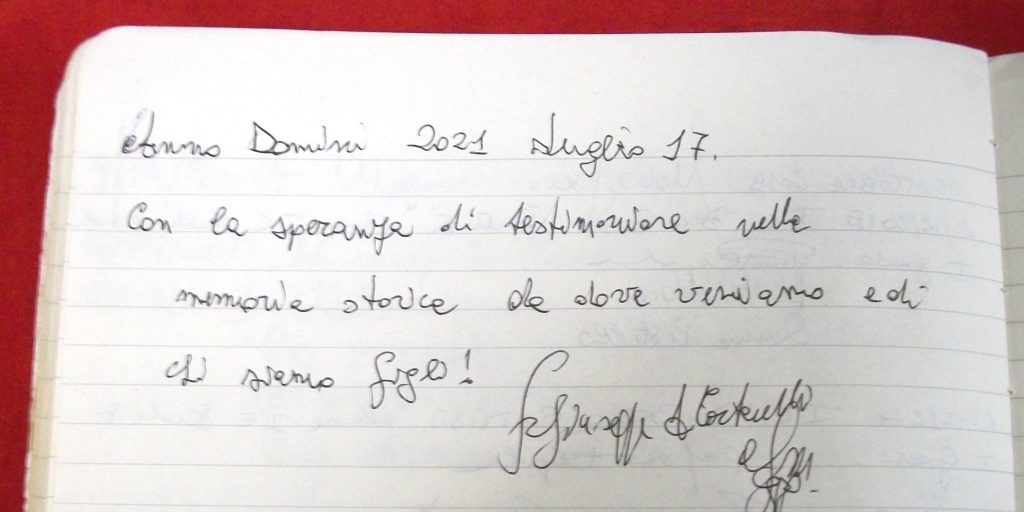 Anno Domini 2021 Luglio 17.
Con la speranza di testimoniare nella
memoria storica da dove veniamo e di
chi siamo figli!
Giuseppe